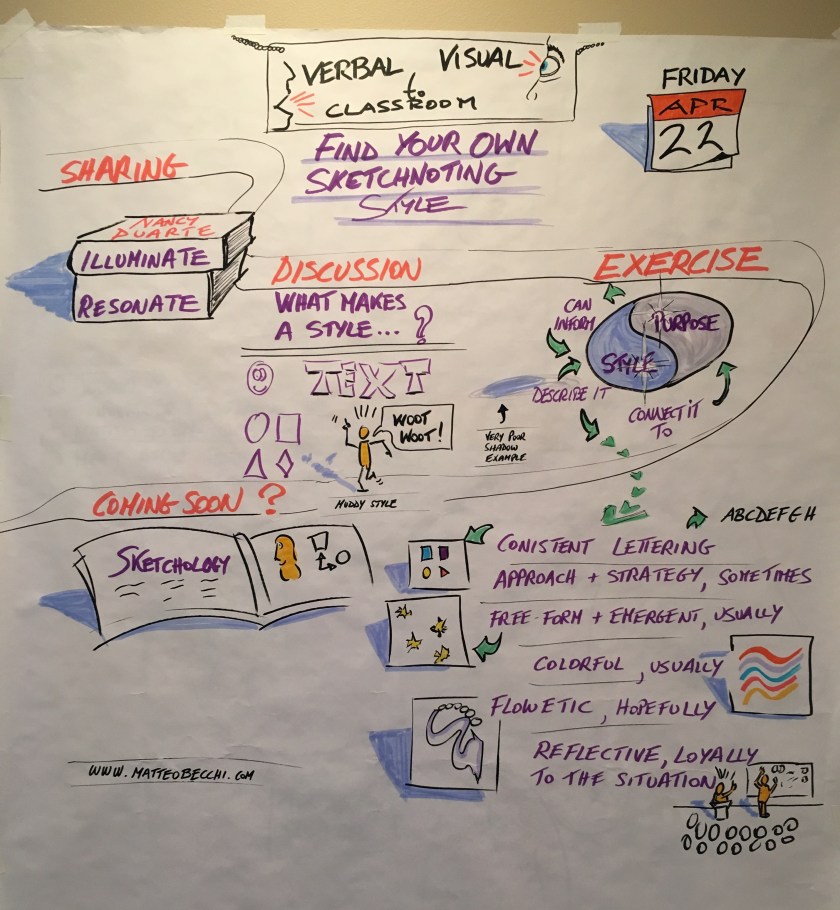 VERBAL to VISUAL
CLASSROOM
FRIDAY
APR
22
FIND YOUR OWN
SKETCHNOTING
STYLE
SHARING
NANCY
DUARTE
ILLUMINATE
RESONATE
DISCUSSION
WHAT MAKES
A STYLE... ?
TEXT
WOOT
WOOT!
MUDDY STYLE
VERY POOR
SHADOW
EXAMPLE
EXERCISE
CAN
INFORM
PURPOSE
STYLE
DESCRIBE IT
CONNECT IT
TO
COMING SOON ?
SKETCHOLOGY
ABCDEFGH
CONISTENT LETTERING
APPROACH + STRATEGY, SOMETIMES
FREE-FORM + EMERGENT, USUALLY
COLORFUL, USUALLY
FLOWETIC, HOPEFULLY
REFLECTIVE, LOYALLY
TO THE SITUATION
WWW.MATTEOBECCHI.COM